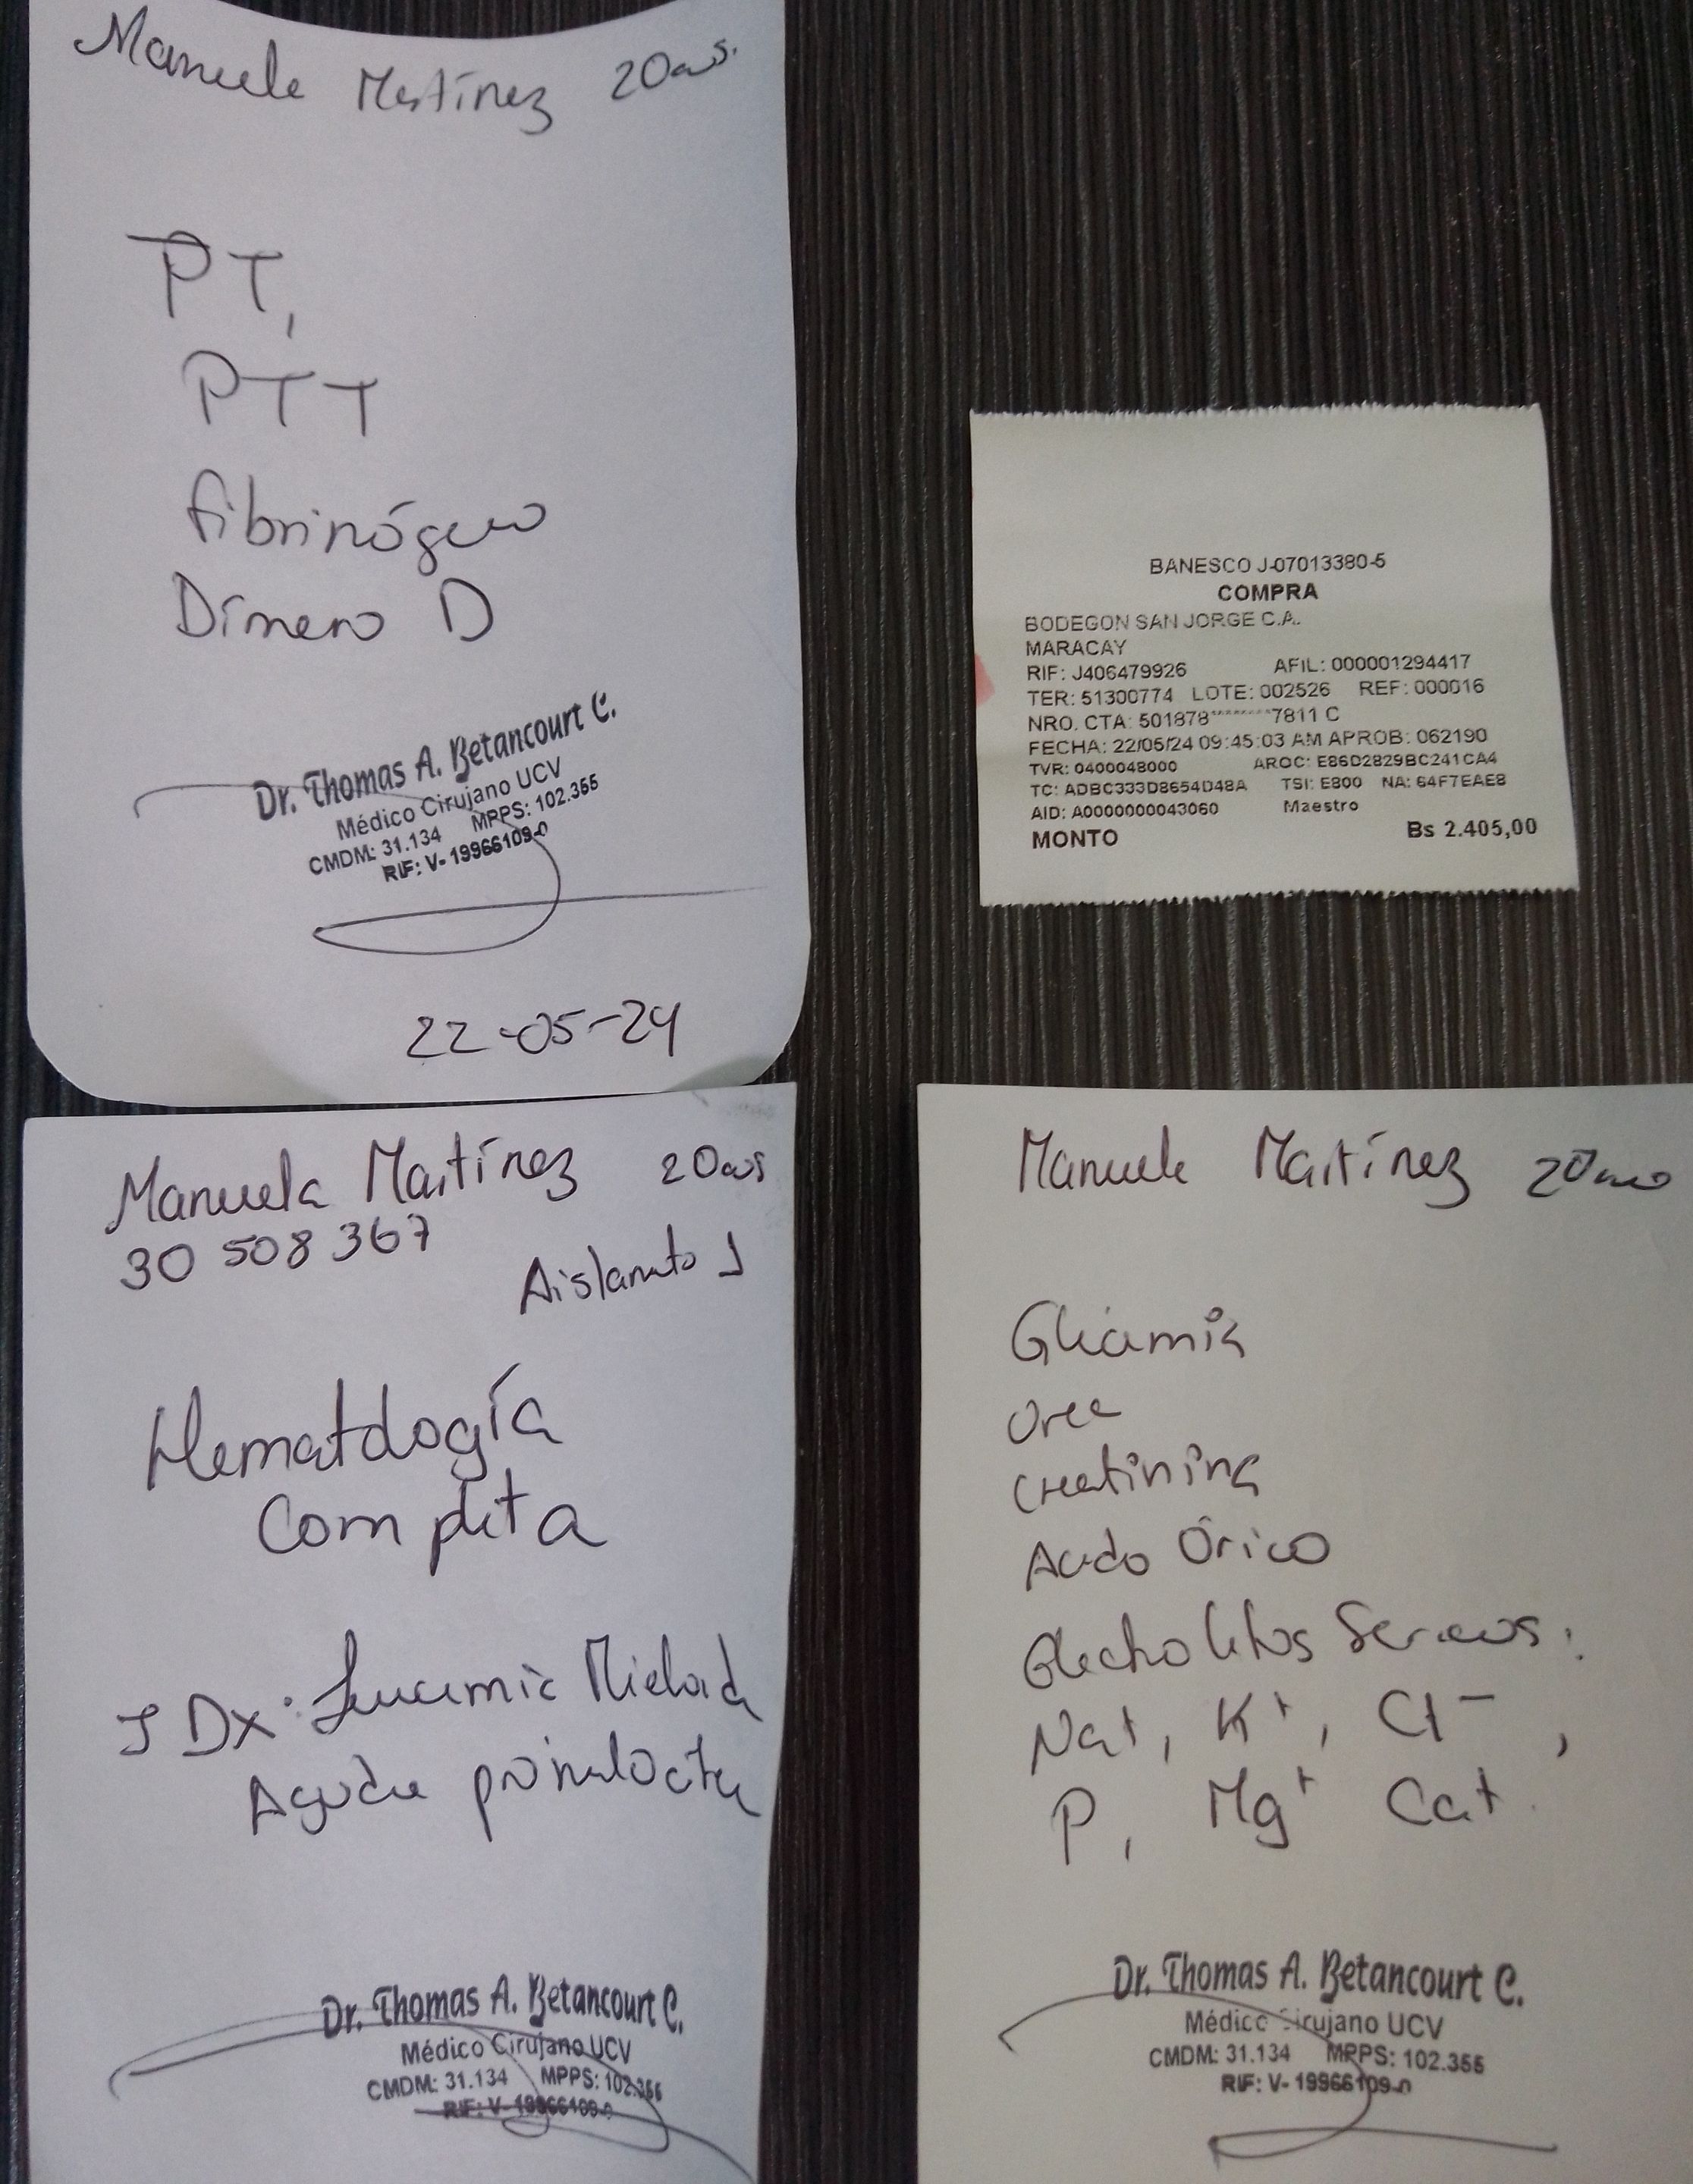 Manuela Martínez 20 años.
PT,
PTT
fibrinógeno
Dímero D
Dr. Thomas A. Betancourt C.
Médico Cirujano UCV
CMDM: 31.134 MPPS: 102.355
RIF: V- 19966109-0
22-05-24
BANESCO J-07013380-5
COMPRA
BODEGON SAN JORGE C.A.
MARACAY
RIF: J406479926 AFIL: 000001294417
TER: 51300774 LOTE: 002526 REF: 000016
NRO. CTA: 501878********7811 C
FECHA: 22/05/24 09:45:03 AM APROB: 062190
TVR: 0400048000 ARQC: E86D2829BC241CA4
TC: ADBC333D8654D48A TSI: E800 NA: 64F7EAE8
AID: A0000000043060 Maestro
MONTO Bs 2.405,00
Manuela Martínez 20 años
30 508 367
Aislamto 1
Hematología
Completa
IDx: Leucemia Mieloide
Aguda promielocítica
Dr. Thomas A. Betancourt C.
Médico Cirujano UCV
CMDM: 31.134 MPPS: 102.355
RIF: V- 19966109-0
Manuela Martínez 20 años
Glicemia
Urea
Creatinina
Acido Úrico
Electrolitos Sericos:
Na+, K+, Cl-,
P, Mg+ Ca+.
Dr. Thomas A. Betancourt C.
Médico Cirujano UCV
CMDM: 31.134 MPPS: 102.355
RIF: V- 19966109-0